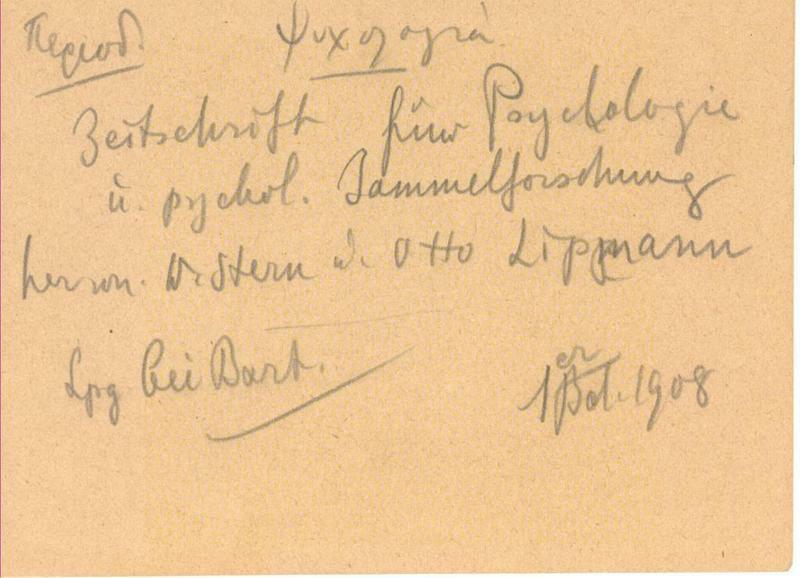 Περιοδ. Ψυχολογία
Zeitschrift für Psychologie
u. psychol. Sammelforschung
W. Stern u. Otto Lippmann
Lpg bei Bart.
1er Bd. 1908